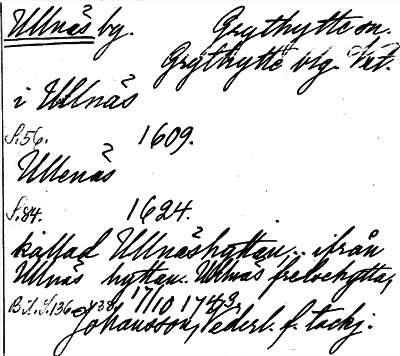 Ullnäs by. Grythytte sn.
Grythytte blg. Vst.
i Ullnäs
S. 56. 1609.
Ullenäs
S. 84. 1624.
kallad Ullnäshyttan, ifrån
Ullnäs hyttan. Ullnäs frelsehytta,
B.1. S. 136 o. 138, 17/10 1743,
Johansson, Vederl. f. tackj.